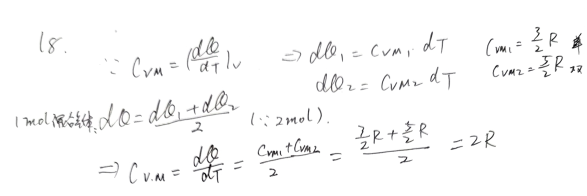 18. ∵ C_{VM} = (dQ/dT)_V ⇒ dQ_1 = C_{VM1} · dT C_{VM1} = 3/2 R 单
dQ_2 = C_{VM2} dT C_{VM2} = 5/2 R 双
1mol混合气体: dQ = (dQ_1 + dQ_2)/2 (∵ 2mol).
⇒ C_{V.M} = dQ/dT = (C_{VM1} + C_{VM2})/2 = (3/2 R + 5/2 R)/2 = 2R